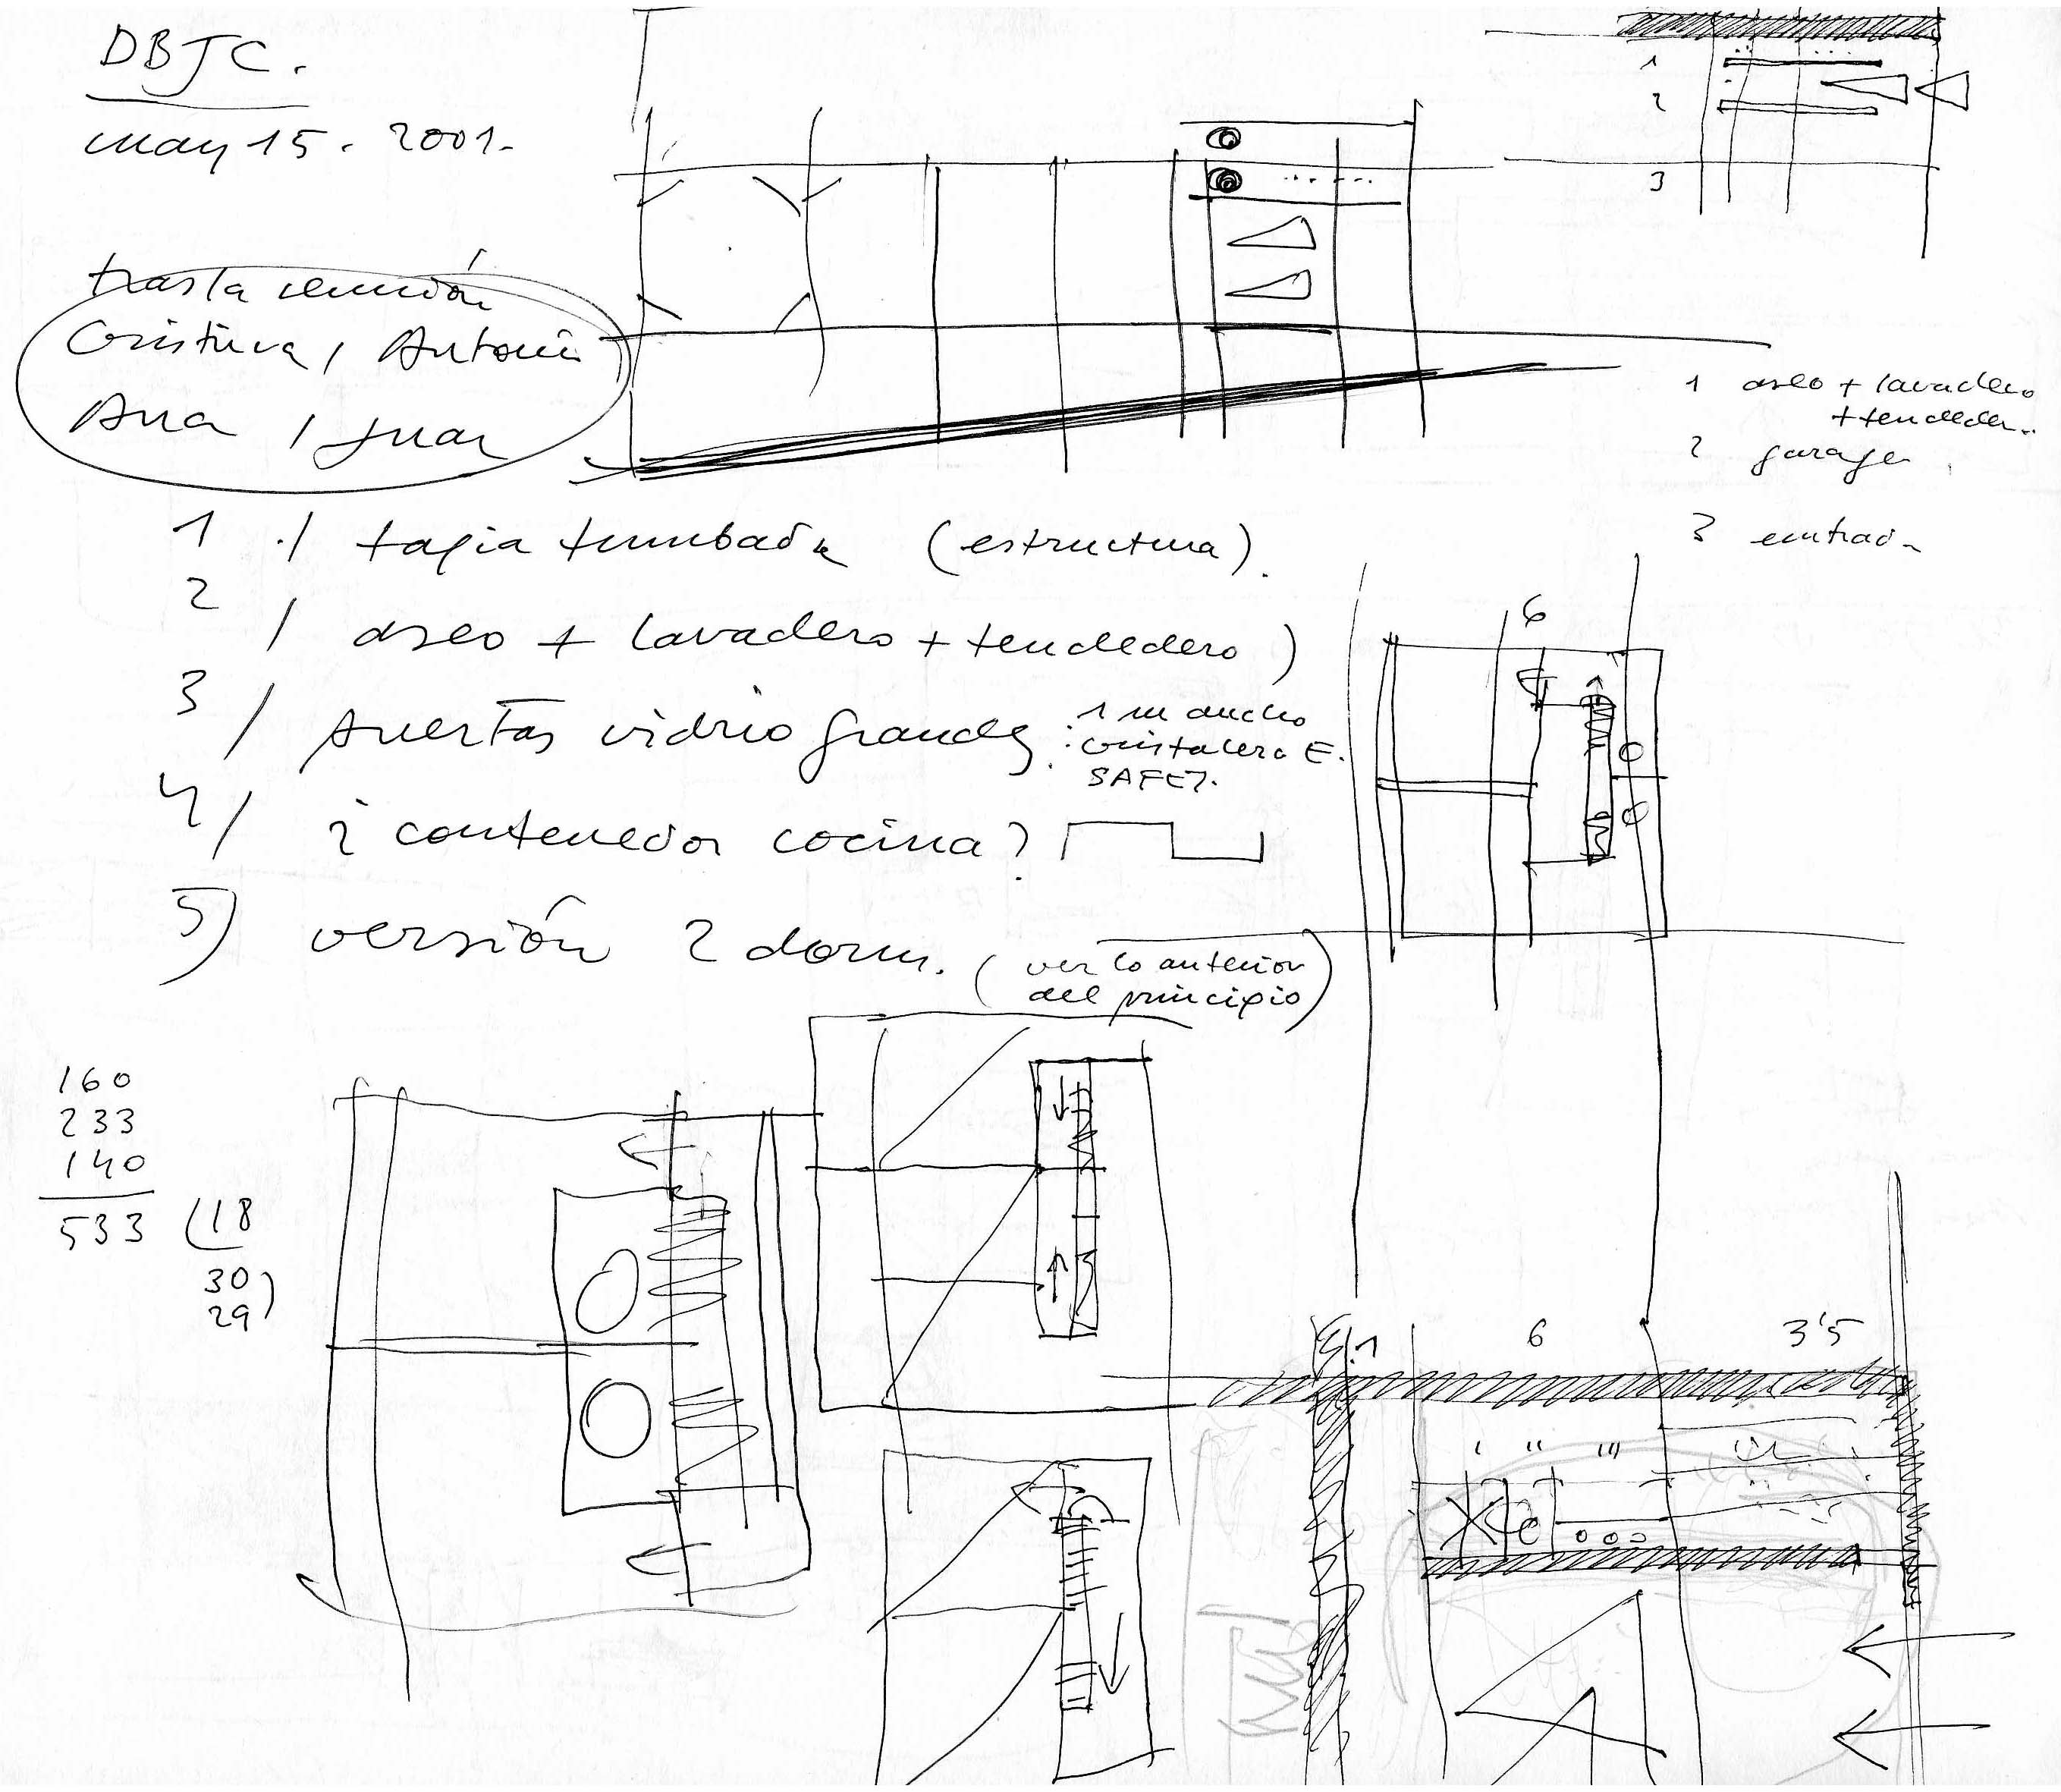 DBJC.
May 15. 2001.
tras la reunión
Cristina, Antonio
Ana / Juan
1 / tapia tumbada (estructura).
2 / aseo + lavadero + tendedero )
3 / puertas vidrio grandes.
: 1 m ancho
: cristalera E.
SAFET.
4 / ¿ contenedor cocina?
5) versión 2 dorm. (ver lo anterior
del principio)
160
233
140
533 (18
30)
29
1
2
3
1 aseo + lavadero
+ tendeder..
2 garage
3 entrada
6
1
6
3'5